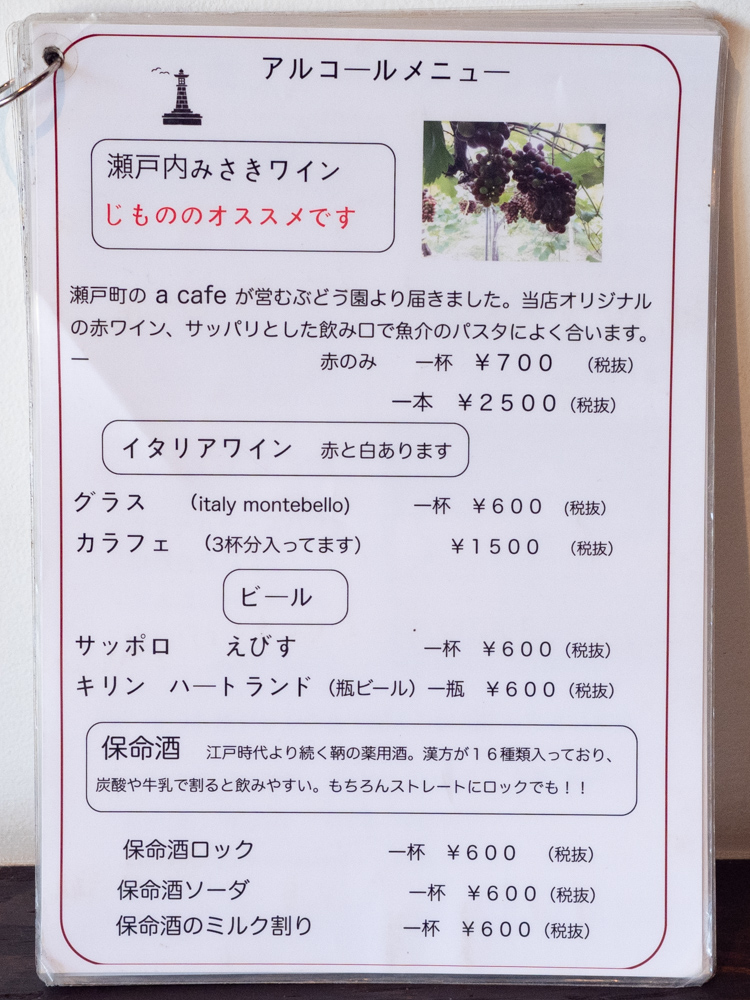 アルコールメニュー
瀬戸内みさきワイン
じもののオススメです
瀬戸町の a cafe が営むぶどう園より届きました。当店オリジナル
の赤ワイン、サッパリとした飲み口で魚介のパスタによく合います。
ー 赤のみ 一杯 ￥７００ （税抜）
一本 ￥２５００（税抜）
イタリアワイン 赤と白あります
グラス （italy montebello) 一杯 ￥６００ （税抜）
カラフェ （3杯分入ってます） ￥１５００ （税抜）
ビール
サッポロ えびす 一杯 ￥６００（税抜）
キリン ハートランド（瓶ビール）一瓶 ￥６００（税抜）
保命酒 江戸時代より続く鞆の薬用酒。漢方が１６種類入っており、
炭酸や牛乳で割ると飲みやすい。もちろんストレートにロックでも！！
保命酒ロック 一杯 ￥６００ （税抜）
保命酒ソーダ 一杯 ￥６００（税抜）
保命酒のミルク割り 一杯 ￥６００（税抜）